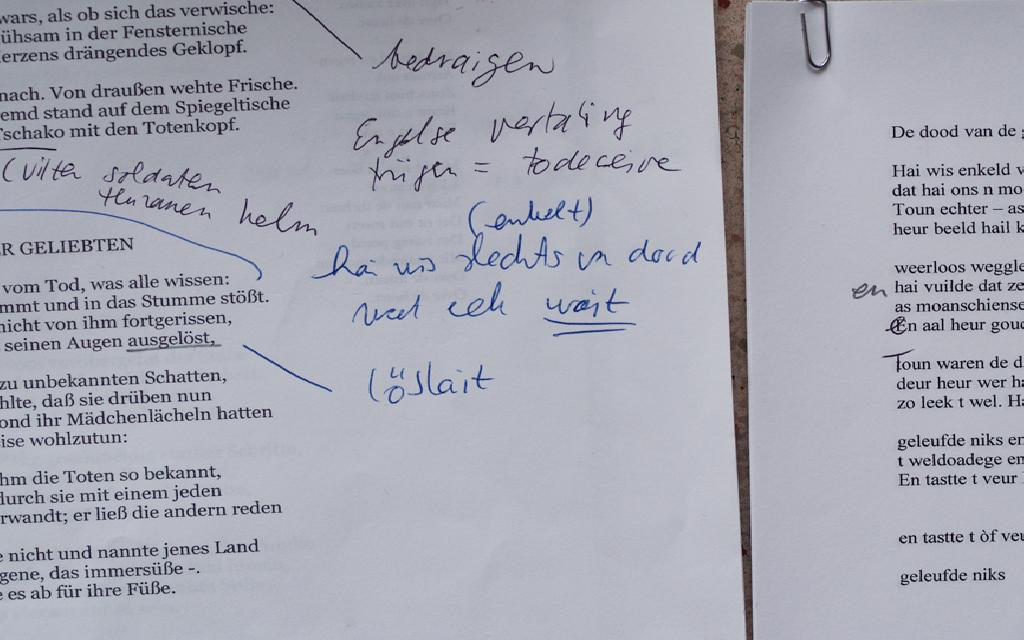 wars, als ob sich das verwische:
ühsam in der Fensternische
erzens drängendes Geklopf.
nach. Von draußen wehte Frische.
emd stand auf dem Spiegeltische
schako mit den Totenkopf.
bedraigen
Engelse vertaling
trügen = to deceive
soldaten
helm
(enkelt)
hai wis slechts van dood
wat elk wait
löslait
R GELIEBTEN
vom Tod, was alle wissen:
mmt und in das Stumme stößt.
nicht von ihm fortgerissen,
seinen Augen ausgelöst,
zu unbekannten Schatten,
hlte, daß sie drüben nun
ond ihr Mädchenlächeln hatten
ise wohlzutun:
hm die Toten so bekannt,
durch sie mit einem jeden
rwandt; er ließ die andern reden
e nicht und nannte jenes Land
gene, das immersüße -.
e es ab für ihre Füße.
De dood van de g
Hai wis enkeld v
dat hai ons n mo
Toun echter – as
heur beeld hail k
weerloos weggle
en hai vuilde dat ze
as moanschiense
En aal heur goud
Toun waren de d
deur heur wer ha
zo leek t wel. Ha
geleufde niks en
t weldoadege en
En tastte t veur
en tastte t òf veu
geleufde niks